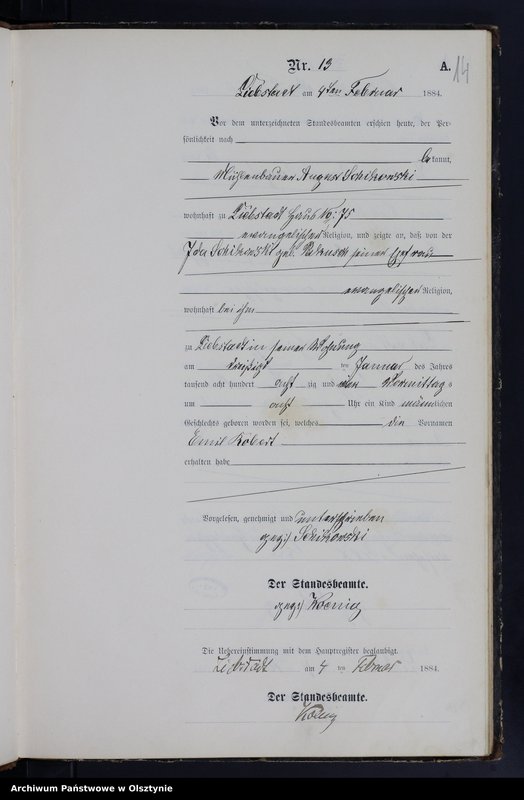 Nr. 13
A. 14
Liebstadt am 4ten Februar 1884.
Vor dem unterzeichneten Standesbeamten erschien heute, der Per-
sönlichkeit nach
bekannt,
Mühlenbauer August Schikowski
wohnhaft zu Liebstadt Haus No: 75
evangelischer Religion, und zeigte an, daß von der
Ida Schikowski geb. seiner Ehefrau
evangelischer Religion,
wohnhaft bei ihm
zu Liebstadt in seiner Wohnung
am dreißigst ten Januar des Jahres
tausend acht hundert acht zig und vier Vormittag s
um acht Uhr ein Kind männlichen
Geschlechts geboren worden sei, welches die Vornamen
Emil Robert
erhalten habe
Vorgelesen, genehmigt und unterschrieben
gez:) Schikowski
Der Standesbeamte.
gez:) Koenig
Die Uebereinstimmung mit dem Hauptregister beglaubigt.
Liebstadt am 4 ten Februar 1884.
Der Standesbeamte.
König
Archiwum Państwowe w Olsztynie